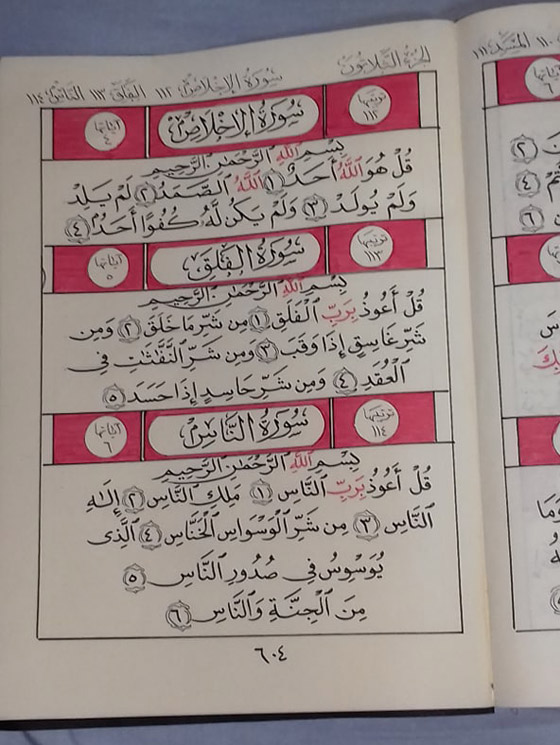 الجزء الثلاثون سورة الإخلاص ١١٢ الفلق ١١٣ الناس ١١٤
ترتيبها ١١٢ سُورَةُ الإِخْلَاصِ آياتها ٤
بِسْمِ ٱللَّهِ ٱلرَّحْمَٰنِ ٱلرَّحِيمِ
قُلْ هُوَ ٱللَّهُ أَحَدٌ ١ ٱللَّهُ ٱلصَّمَدُ ٢ لَمْ يَلِدْ
وَلَمْ يُولَدْ ٣ وَلَمْ يَكُن لَّهُ كُفُوًا أَحَدٌ ٤
ترتيبها ١١٣ سُورَةُ الْفَلَقِ آياتها ٥
بِسْمِ ٱللَّهِ ٱلرَّحْمَٰنِ ٱلرَّحِيمِ
قُلْ أَعُوذُ بِرَبِّ ٱلْفَلَقِ ١ مِن شَرِّ مَا خَلَقَ ٢ وَمِن
شَرِّ غَاسِقٍ إِذَا وَقَبَ ٣ وَمِن شَرِّ ٱلنَّفَّٰثَٰتِ فِى
ٱلْعُقَدِ ٤ وَمِن شَرِّ حَاسِدٍ إِذَا حَسَدَ ٥
ترتيبها ١١٤ سُورَةُ النَّاسِ آياتها ٦
بِسْمِ ٱللَّهِ ٱلرَّحْمَٰنِ ٱلرَّحِيمِ
قُلْ أَعُوذُ بِرَبِّ ٱلنَّاسِ ١ مَلِكِ ٱلنَّاسِ ٢ إِلَٰهِ
ٱلنَّاسِ ٣ مِن شَرِّ ٱلْوَسْوَاسِ ٱلْخَنَّاسِ ٤ ٱلَّذِى
يُوَسْوِسُ فِى صُدُورِ ٱلنَّاسِ ٥
مِنَ ٱلْجِنَّةِ وَٱلنَّاسِ ٦
٦٠٤
المسد ١١١